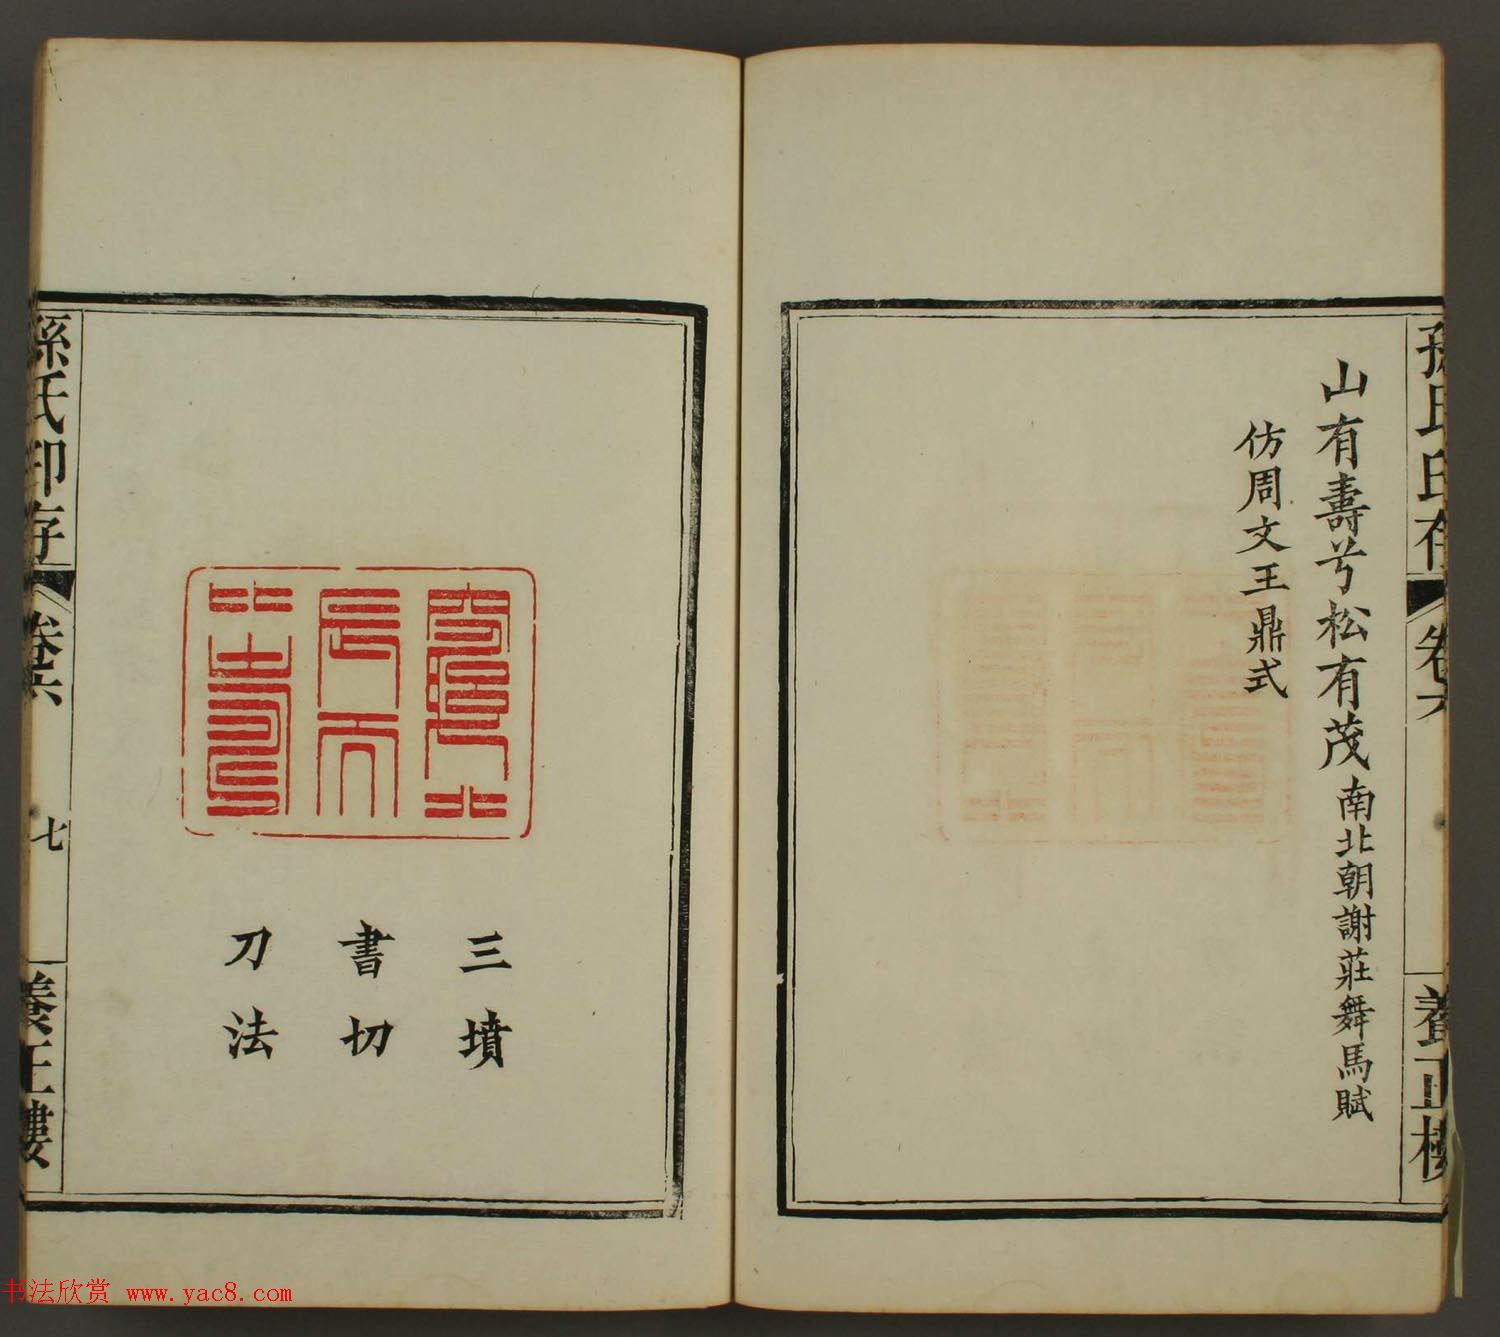 山有壽兮松有茂南北朝謝莊舞馬賦
仿周文王鼎式
孫氏印存
卷六
養正樓
三墳
書切
刀法
孫氏印存
卷六
七
養正樓
书法欣赏 www.yac8.com